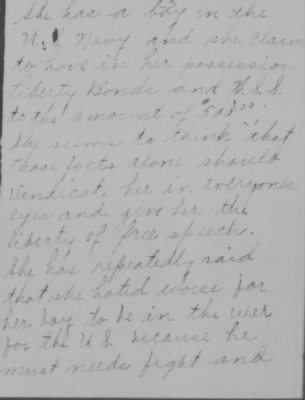 She has a boy in the
U.S. Navy and she claims
to have in her possession
Liberty Bonds and W.S.S.
to the amount of $500.00.
She seems to think that
those facts alone should
vindicate her in everyones
eyes and give her the
liberty of free speech.
She has repeatedly said
that she hated worse for
her boy to be in the war
for the U.S. because he
must needs fight and